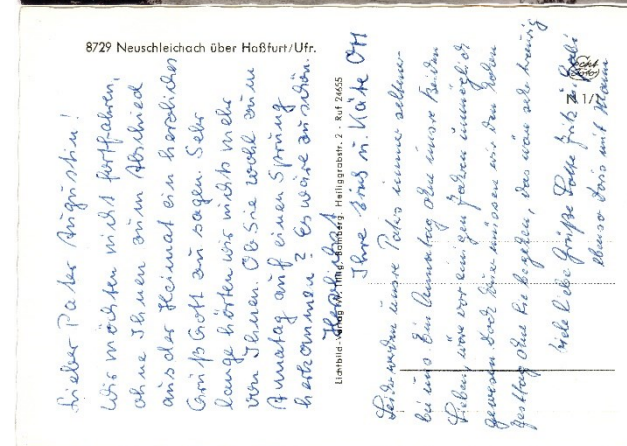 8729 Neuschleichach über Haßfurt/Ufr.
Lieber Pater Augustin!
Wir möchten nicht fortfahren,
ohne Ihnen zum Abschied
aus der Heimat ein herzliches
Grüß Gott zu sagen. Sehr
lange hörten wir nichts mehr
von Ihnen. Ob Sie wohl zum
auf einen Sprung
herkommen? Es wäre zu schön.
Herzlichst
Ihre u. Käte Ott
Lichtbild-Verlag Bamberg, Heiliggrabstr. 2 - Ruf 24655
Leider werden unsre immer seltener
bei uns. Ein ohne unsre beiden
Lieben, wäre vor einigen Jahren unmöglich
gewesen. Doch müssen wir den
Festtag ohne Sie begehen, das wäre sehr traurig
Viele liebe Grüße Fritz
ebenso mit Mann
Echt Foto
N 1/1